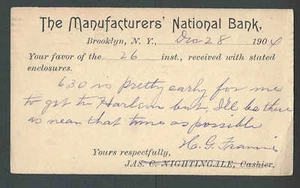 The Manufacturers' National Bank,
Brooklyn, N. Y., Dec 28 1904
Your favor of the 26 inst., received with stated
enclosures.
6 30 is pretty early for me
to get the Harlem boat, I'll be there
as near that time as possible
H. G.
Yours respectfully,
JAS. C. NIGHTINGALE, Cashier.